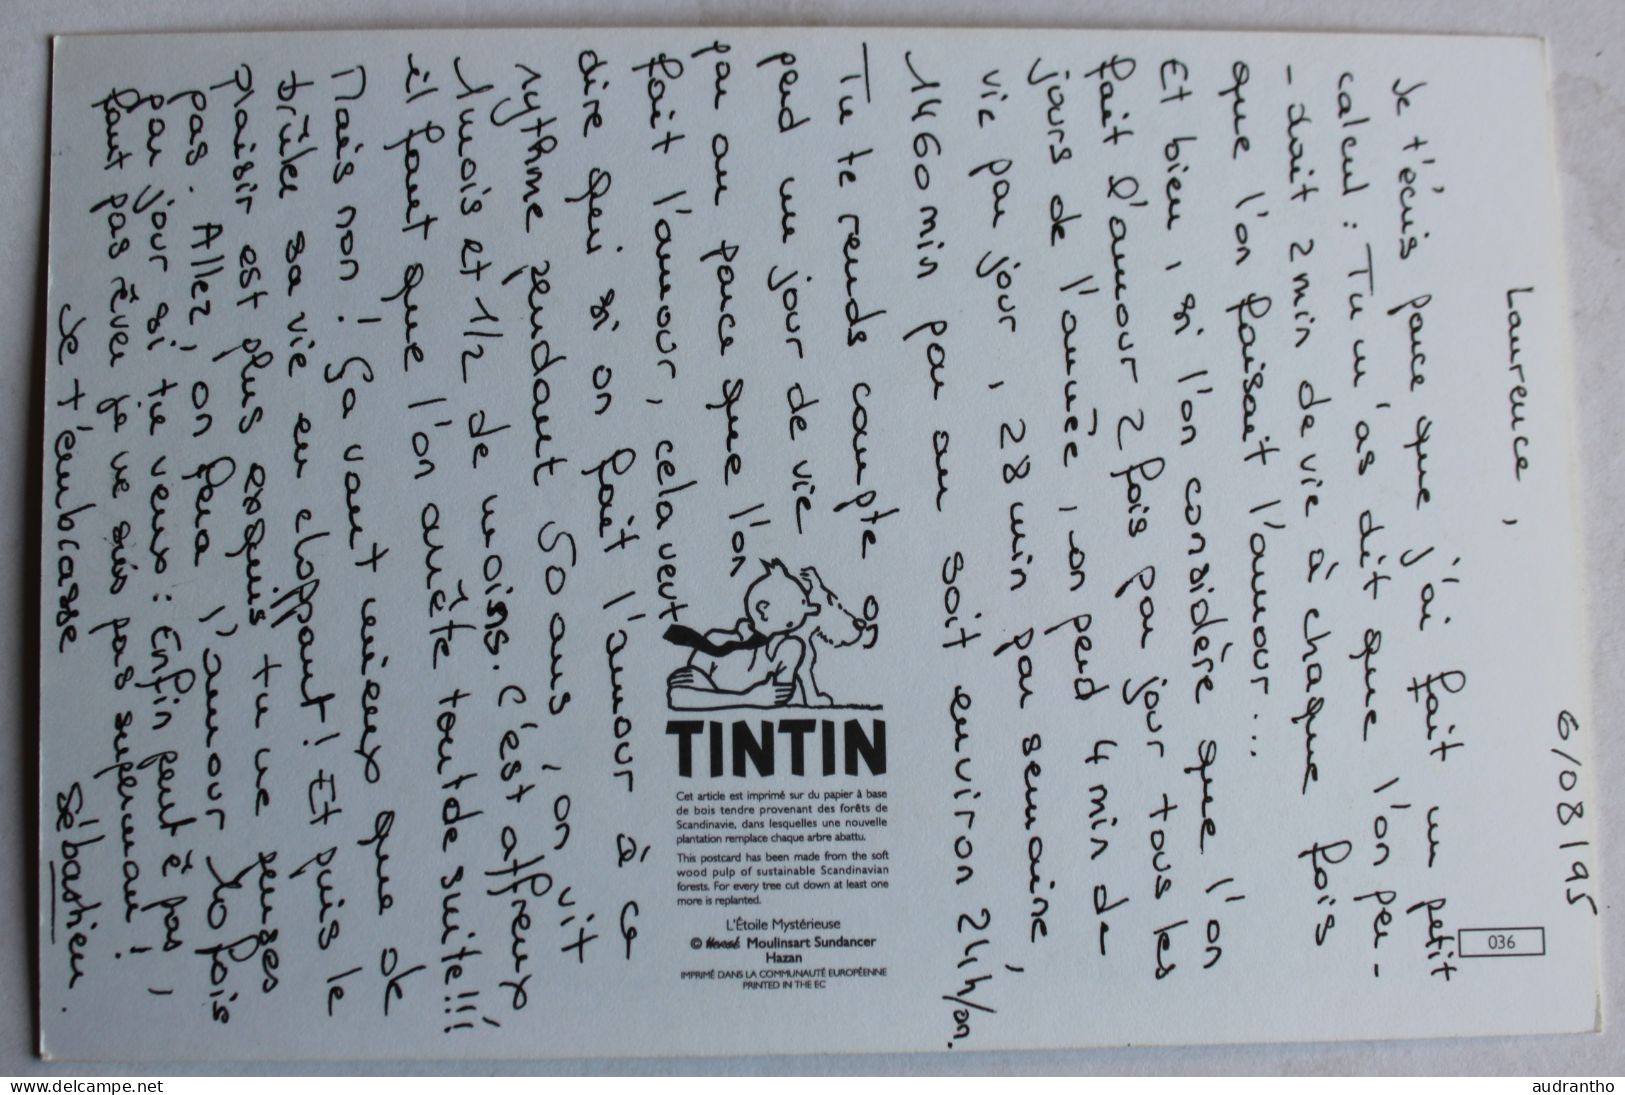 6/08/95
Laurence,
Je t'écris parce que j'ai fait un petit
calcul : Tu m'as dit que l'on per-
-dait 2 min de vie à chaque fois
que l'on faisait l'amour...
Et bien, si l'on considère que l'on
fait l'amour 2 fois par jour tous les
jours de l'année, on perd 4 min de
vie par jour, 28 min par semaine,
1460 min par an soit environ 24h/an.
Tu te rends compte on
perd un jour de vie
par an parce que l'on
fait l'amour, cela veut
dire que si on fait l'amour à ce
rythme pendant 50 ans, on vit
1 mois et 1/2 de moins. C'est affreux
il faut que l'on arrête tout de suite!!!
Mais non! Ça vaut mieux que de
brûler sa vie en cloppant! Et puis le
plaisir est plus exquis tu ne penses
pas. Allez, on fera l'amour 10 fois
par jour si tu veux : Enfin peut être pas,
faut pas rêver je ne suis pas superman!
Je t'embrasse
Sébastien.
036
TINTIN
Cet article est imprimé sur du papier à base
de bois tendre provenant des forêts de
Scandinavie, dans lesquelles une nouvelle
plantation remplace chaque arbre abattu.
This postcard has been made from the soft
wood pulp of sustainable Scandinavian
forests. For every tree cut down at least one
more is replanted.
L'Étoile Mystérieuse
© Hergé Moulinsart Sundancer
Hazan
IMPRIMÉ DANS LA COMMUNAUTÉ EUROPÉENNE
PRINTED IN THE EC
delcampe.net
audrantho